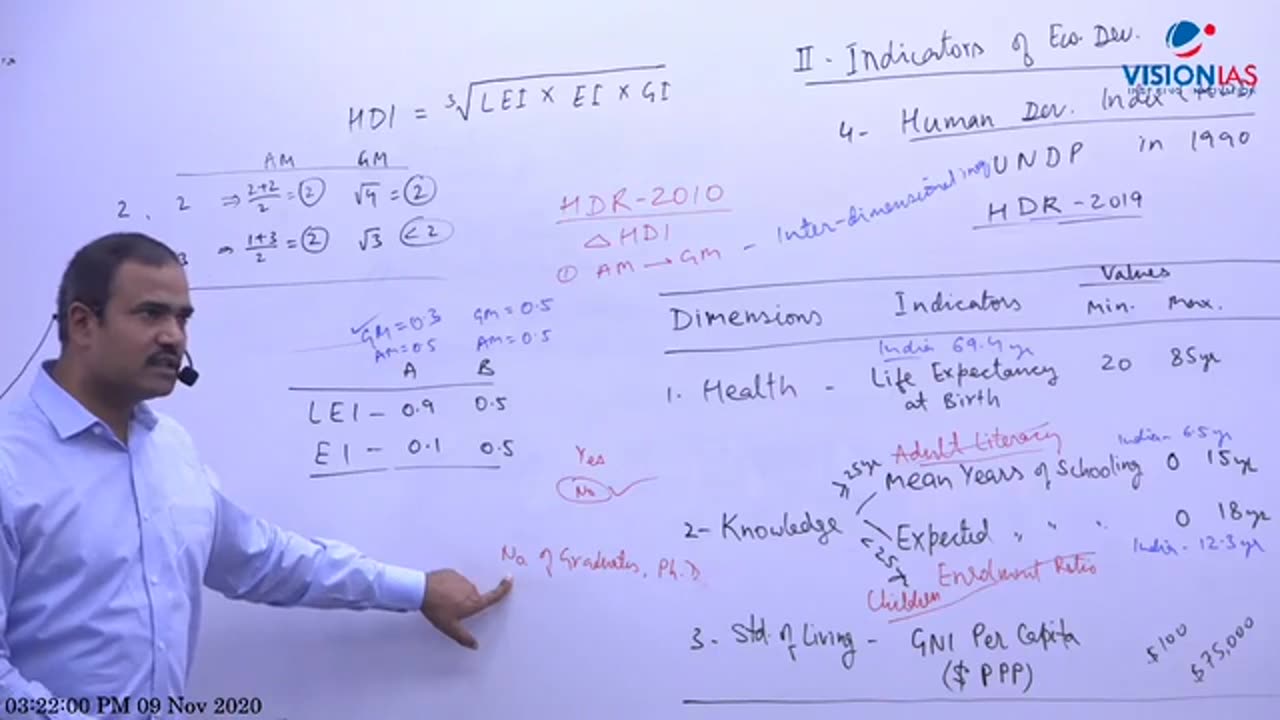 II - Indicators of Eco. Dev.
VISIONIAS
INSPIRING INNOVATION
4- Human Dev. Index
UNDP in 1990
HDR - 2019
HDI = ³√LEI × EI × GI
AM GM
2, 2 ⇒ 2+2/2 = 2 √4 = 2
3 ⇒ 1+3/2 = 2 √3 < 2
HDR-2010
△ HDI
① AM → GM - Inter-dimensional
✓GM = 0.3 GM = 0.5
AM = 0.5 AM = 0.5
A B
LEI - 0.9 0.5
EI - 0.1 0.5
Yes
No ✓
No. of Graduates, Ph.D
Dimensions Indicators Values
Min. Max.
India 69.4 yr
1. Health - Life Expectancy 20 85yr
at Birth
Adult Literacy India - 6.5 yr
≥25yr Mean Years of Schooling 0 15yr
2- Knowledge
Expected " " 0 18yr
India - 12.3 yr
Children Enrolment Ratio
3- Std. of Living - GNI Per Capita $100 $75,000
($ PPP)
03:22:00 PM 09 Nov 2020